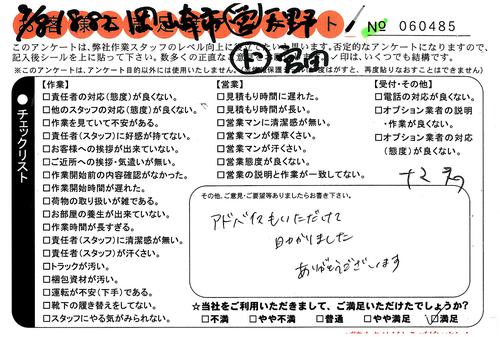 № 060485
このアンケートは、弊社作業スタッフのレベル向上に
※このアンケートは、アンケート目的以外には使用いたしません。
チェックリスト
【作業】
□責任者の対応(態度)が良くない。
□他のスタッフの対応(態度)が良くない。
□作業を見ていて不安がある。
□責任者(スタッフ)に好感が持てない。
□お客様への挨拶が出来ていない。
□ご近所への挨拶・気遣いが無い。
□作業開始前の内容確認がなかった。
□作業開始時間が遅れた。
□荷物の取り扱いが雑である。
□お部屋の養生が出来ていない。
□作業時間が長すぎる。
□責任者(スタッフ)に清潔感が無い。
□責任者(スタッフ)が汗くさい。
□トラックが汚い。
□梱包資材が汚い。
□運転が不安(下手)である。
□靴下の履き替えをしてない。
□スタッフにやる気がみられない。
【営業】
□見積もり時間に遅れた。
□見積もり時間が長い。
□営業マンに清潔感が無い。
□営業マンが煙草くさい。
□営業マンが汗くさい。
□営業態度が良くない。
□営業の説明と作業が一致してない。
【受付・その他】
□電話の対応が良くない。
□オプション業者の説明
・作業が良くない。
□オプション業者の対応
(態度)が良くない。
その他、ご意見・ご要望等ありましたらお書き下さい。
アドバイスもいただけて
助かりました
ありがとうございます
☆当社をご利用いただきまして、ご満足いただけたでしょうか?
□不満 □やや不満 □普通 □やや満足 ☑満足